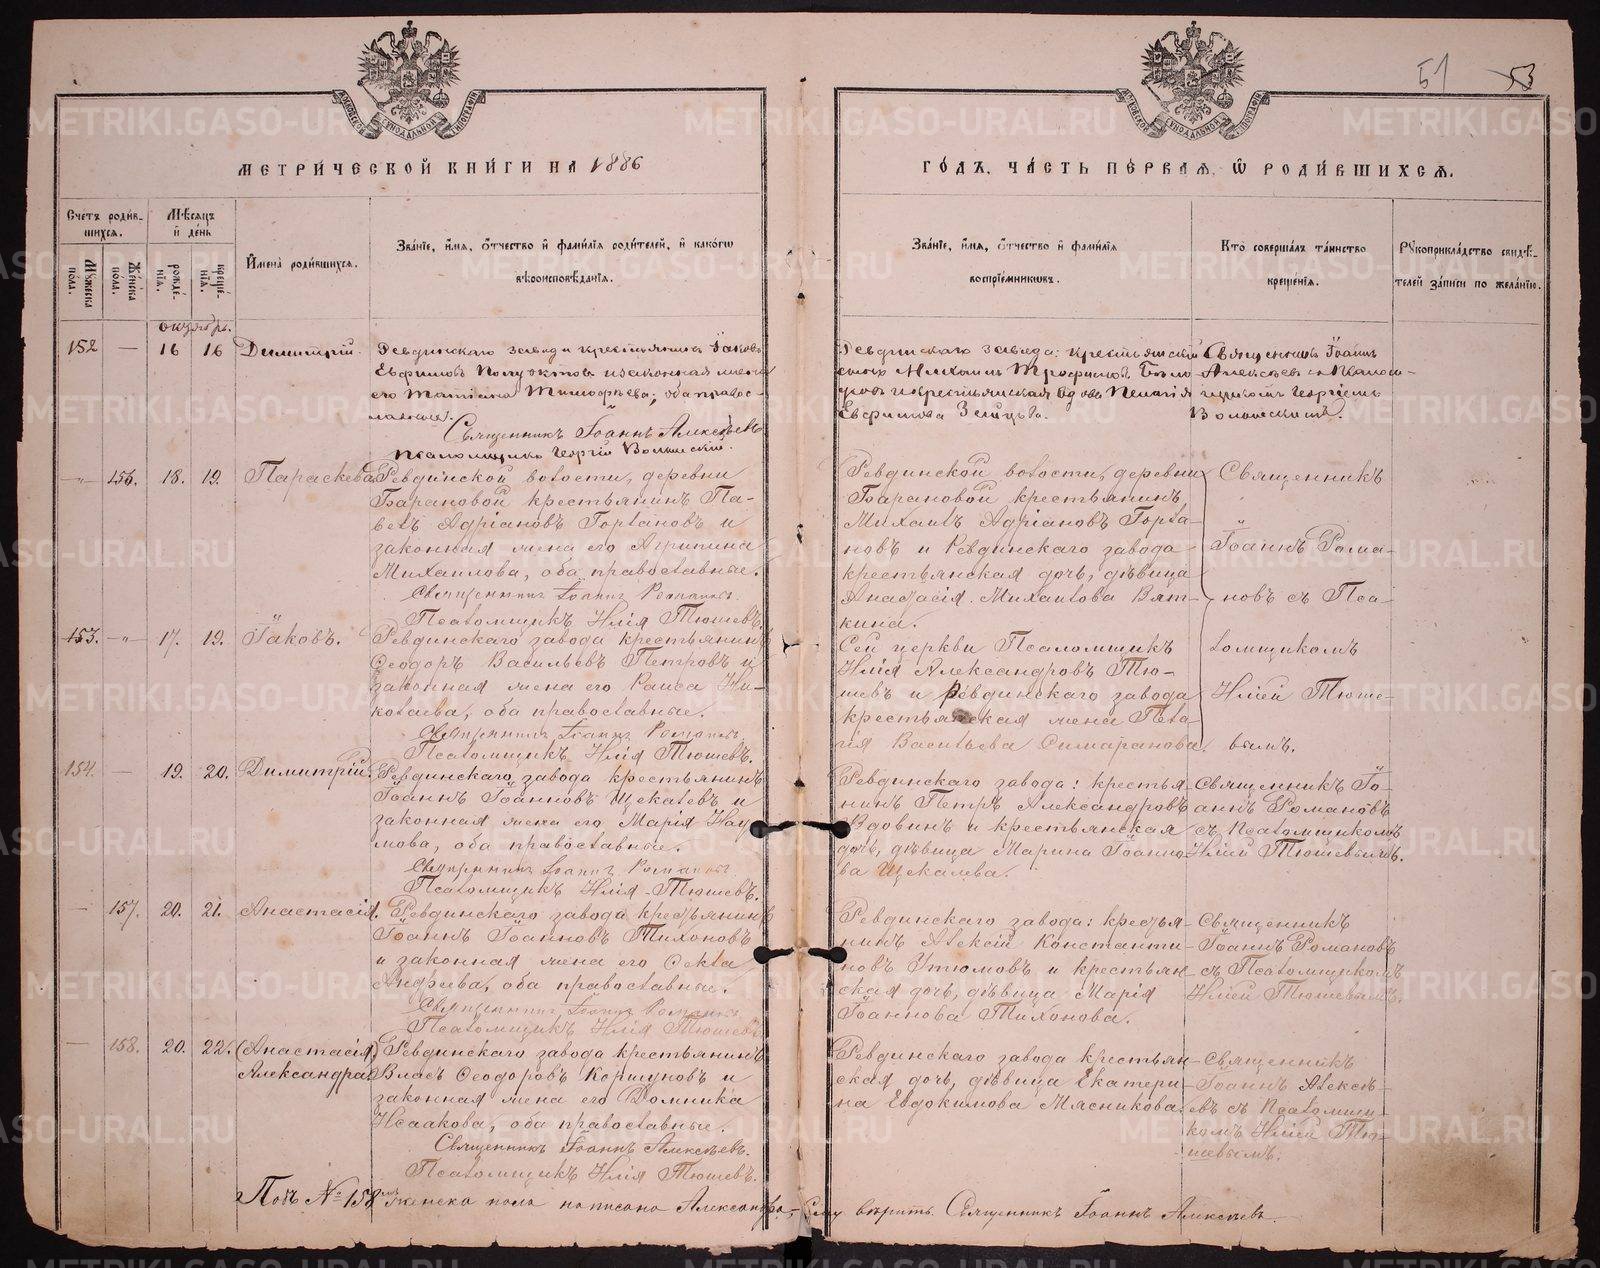 51 53
МЕТРИ́ЧЕСКОЙ КНИ́ГИ НА 1886
ГО́ДЪ, ЧА́СТЬ ПЕ́РВАЯ, Ѡ РОДИ́ВШИХСЯ.
Счетъ роди́в-
шихся.
Мѣ́сяцъ
и де́нь
Му́жеска
по́ла.
Же́нска
по́ла.
рожде́-
нія.
креще́-
нія.
Имена̀ роди́вшихся.
Зва́нїе, и́мя, ѻ҆́тчество и҆ фами́лїя роди́телей, и҆ како́гѡ
вѣроисповѣ́данїя.
Зва́нїе, и́мя, ѻ҆́тчество и҆ фами́лїя
воспрїе́мникѡвъ.
Кто̀ соверша́лъ та́инство
креще́нїя.
Рꙋкоприкла́дство свидѣ́-
телей за́писи по жела́нїю.
октябрь.
152 — 16 16 Димитрій.
Ревдинскаго завода крестьянинъ Іаковъ
Евфимовъ Полуектовъ и законная жена
его Татіана Тимофѣева; оба правос-
лавные.
Священникъ Іоаннъ Алексѣевъ
псаломщикъ Георгій Волынскій.
Ревдинскаго завода: крестьянскій
сынъ Михаилъ Трофимовъ Бѣло-
и крестьянская вдова Пелагія
Евфимова Зайцева.
Священникъ Іоаннъ
Алексѣевъ съ Псалом-
щикомъ Георгіемъ
Волынскимъ.
-"- 156. 18. 19. Параскева
Ревдинской волости, деревни
Барановой крестьянинъ Па-
велъ Адріановъ Горлановъ и
законная жена его Агрипина
Михаилова, оба православные.
Священникъ Іоаннъ Романовъ.
Псаломщикъ Илія Тюшевъ.
Ревдинской волости, деревни
Барановой крестьянинъ
Михаилъ Адріановъ Горла-
новъ и Ревдинскаго завода
крестьянская дочь, дѣвица
Анастасія Михаилова Вят-
кина.
Священникъ
"
Іоаннъ Рома-
новъ съ Пса-
153. -"- 17. 19. Іаковъ.
Ревдинскаго завода крестьянинъ
Ѳеодоръ Васильевъ Петровъ и
законная жена его Раиса Ни-
колаева, оба православные.
Священникъ Іоаннъ Романовъ.
Псаломщикъ Илія Тюшевъ.
Сей церкви Псаломщикъ
Илія Александровъ Тю-
шевъ и Ревдинскаго завода
крестьянская жена Пела-
гія Васильева Симаранова.
ломщикомъ
Иліей Тюше-
вымъ.
154. — 19. 20. Димитрій.
Ревдинскаго завода крестьянинъ
Іоаннъ Іоанновъ Щекалевъ и
законная жена его Марія Нау-
мова, оба православные.
Священникъ Іоаннъ Романовъ.
Псаломщикъ Илія Тюшевъ.
Ревдинскаго завода: крестья-
нинъ Петръ Александровъ
Вдовинъ и крестьянская
дочь, дѣвица Марина Іоанно-
ва Щекалева.
Священникъ Іо-
аннъ Романовъ
съ Псаломщикомъ
Иліей Тюшевымъ.
— 157. 20. 21. Анастасія.
Ревдинскаго завода крестьянинъ
Іоаннъ Іоанновъ Тихоновъ
и законная жена его Ѳекла
Андреева, оба православные.
Священникъ Іоаннъ Романовъ.
Псаломщикъ Илія Тюшевъ
Ревдинскаго завода: крестья-
нинъ Алексій Константи-
новъ Утюмовъ и крестьян-
ская дочь, дѣвица Марія
Іоаннова Тихонова.
Священникъ
Іоаннъ Романовъ
съ Псаломщикомъ
Иліей Тюшевымъ.
— 158. 20. 22. (Анастасія)
Александра
Ревдинскаго завода крестьянинъ
Власъ Ѳеодоровъ Коршуновъ и
законная жена его Домника
Исаакова, оба православные.
Священникъ Іоаннъ Алексѣевъ.
Псаломщикъ Илія Тюшевъ.
Ревдинскаго завода крестьян-
ская дочь, дѣвица Екатери-
на Евдокимова Мясникова.
Священникъ
Іоаннъ Алексѣ-
евъ съ Псаломщи-
комъ Иліей Тю-
шевымъ.
Подъ № 158мъ женска пола написано Александра, сему вѣрить. Священникъ Іоаннъ Алексѣевъ.
METRIKI.GASO-URAL.RU